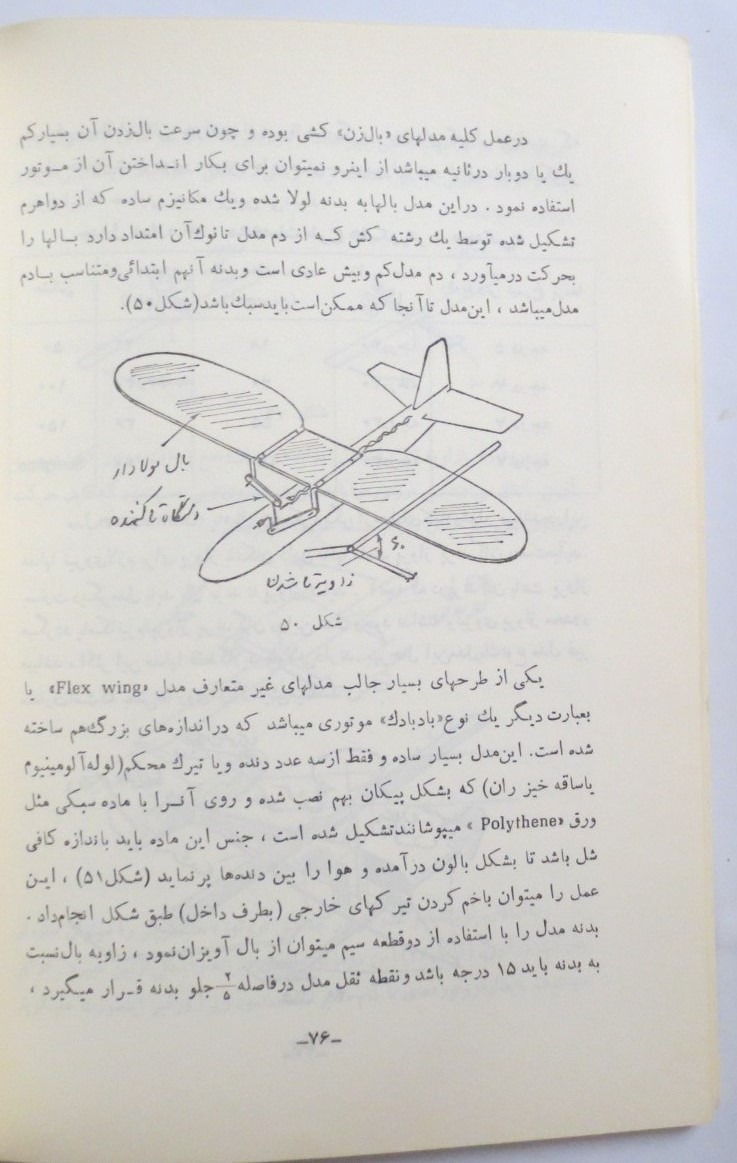 درعمل کلیه مدلهای «بال‌زن» کشی بوده و چون سرعت بال‌زدن آن بسیارکم
یك یا دوبار درثانیه میباشد از اینرو نمیتوان برای بکار انـداختن آن از مـوتور
استفاده نمود . دراین مدل بالهابه بدنه لولا شده ویك مکانیزم ساده که از دواهرم
تشکیل شده توسط یك رشته کش کـه از دم مدل تانوك‌آن امتداد دارد بـالها را
بحرکت درمیآورد ، دم مدل‌کم وبیش عادی است وبدنه آنهم ابتدائی‌ومتناسب بـادم
مدل‌میباشد ، این‌مدل تاآنجا که ممکن‌است باید‌سبك باشد(شکل۵۰).
بال لولا دار
دستگاه تاکننده
۶۰
زاویه تا شدن
شکل ۵۰
یکی از طرحهای بسیار جالب مدلهای غیر متعارف مدل «Flex wing» یا
بعبارت دیگر یك نوع«بادبادك» موتوری میباشد که دراندازه‌های بزرگ‌هم ساخته
شده است. این‌مدل بسیار ساده و فقط ازسه عدد دنده ویا تیرك محکم(لوله‌آلومینیوم
یاساقه خیز ران) که بشکل پیکان بهم نصب شده و روی آنـرا با ماده سبکی مثل
ورق «Polythene » میپوشانندتشکیل شده است ، جنس این ماده باید باندازه کافی
شل باشد تا بشکل بالون درآمده و هوا را بین دنده‌ها پر نماید (شکل۵۱) ، ایـن
عمل را میتوان باخم کردن تیر کهای خارجی (بطرف داخل) طبق شکل انجام‌داد .
بدنه مدل را با استفاده از دوقطعه سیم میتوان از بال آویزان‌نمود ، زاویه بال‌نسبت
به بدنه باید ۱۵ درجه باشد ونقطه ثقل مدل درفاصله ۲/۵ جلو بدنه قـرار میگیرد ،
-۷۶-